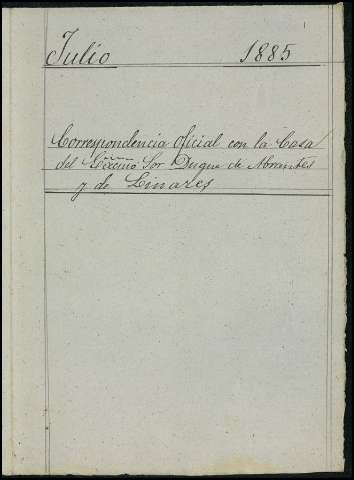 Julio 1885
Correspondencia oficial con la Casa
del Excmo Sor Duque de Abrantes
y de Linares